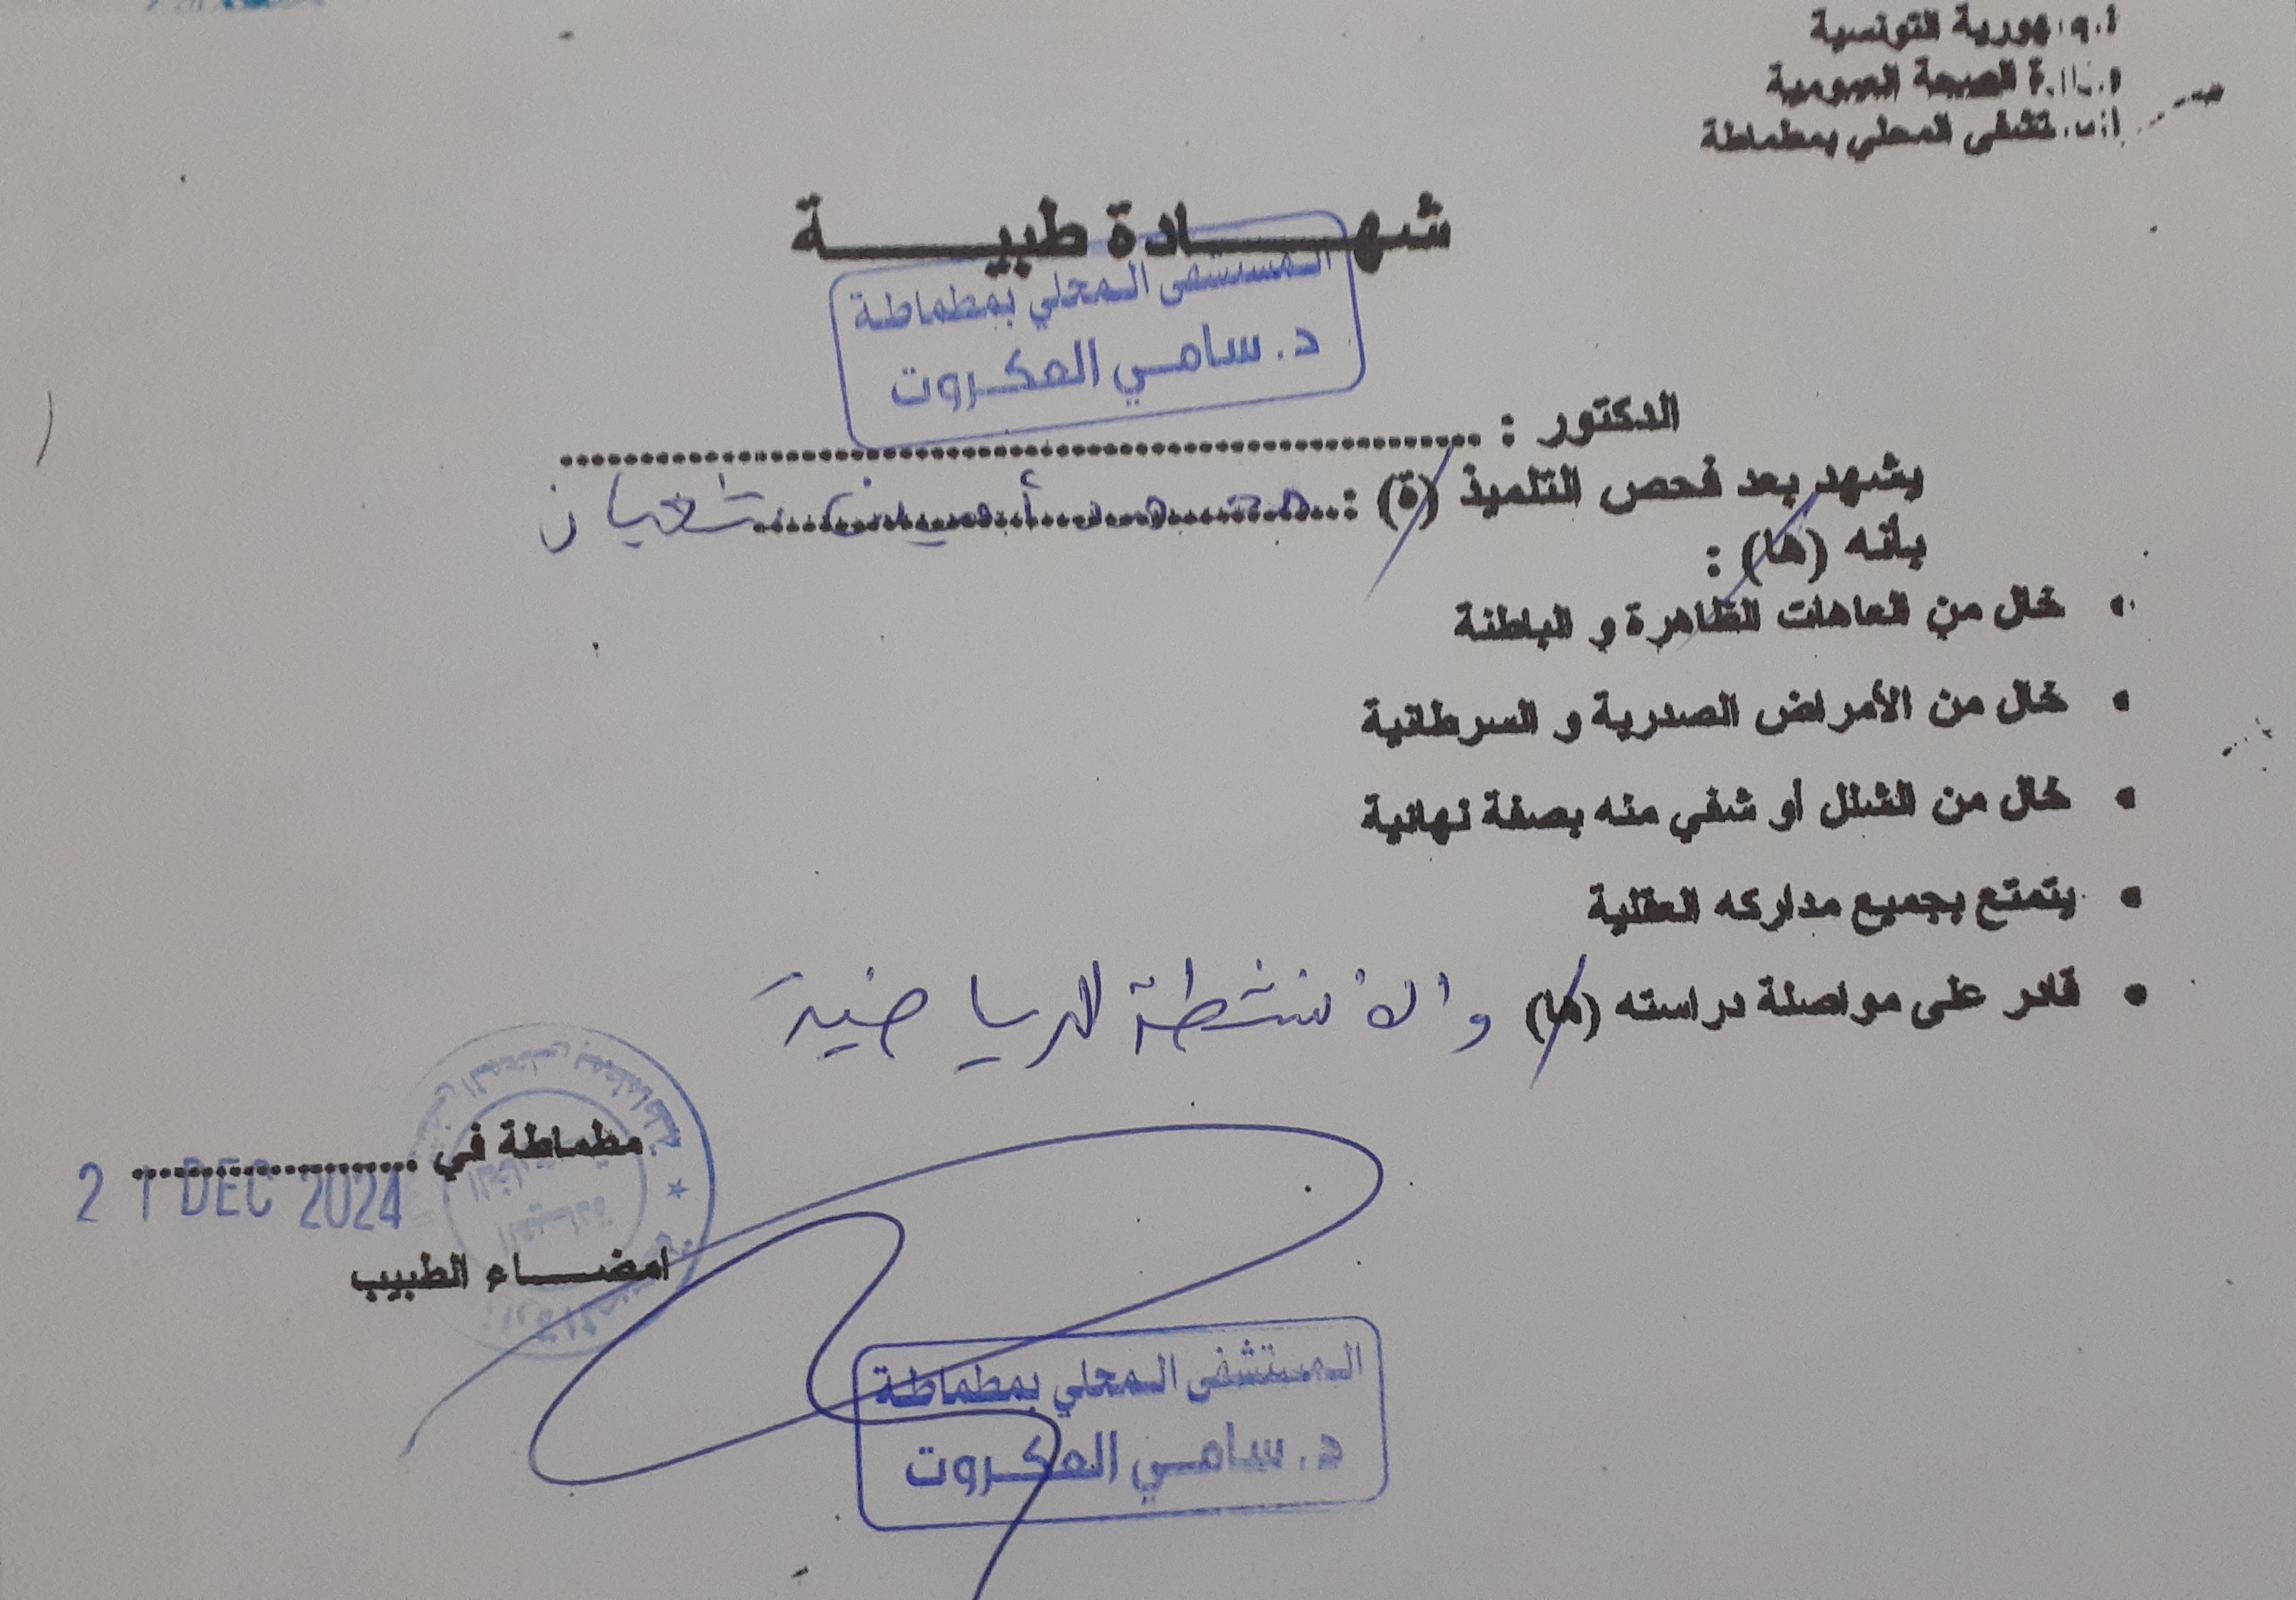 الجمهورية التونسية
وزارة الصحة العمومية
المستشفى المحلي بمطماطة
شهـــــادة طبيـــــة
المستشفى المحلي بمطماطة
د. سامي العكروت
الدكتور : ......................................................
يشهد بعد فحص التلميذ (ة) : محمد أمين شعبان
بأنه (ها) :
• خال من العاهات الظاهرة و الباطنة
• خال من الأمراض الصدرية و السرطانية
• خال من الشلل أو شفي منه بصفة نهائية
• يتمتع بجميع مداركه العقلية
• قادر على مواصلة دراسته (ها) والأنشطة الرياضية
مطماطة في ....................
21 DEC 2024
امضـــاء الطبيب
المستشفى المحلي بمطماطة
د. سامي العكروت